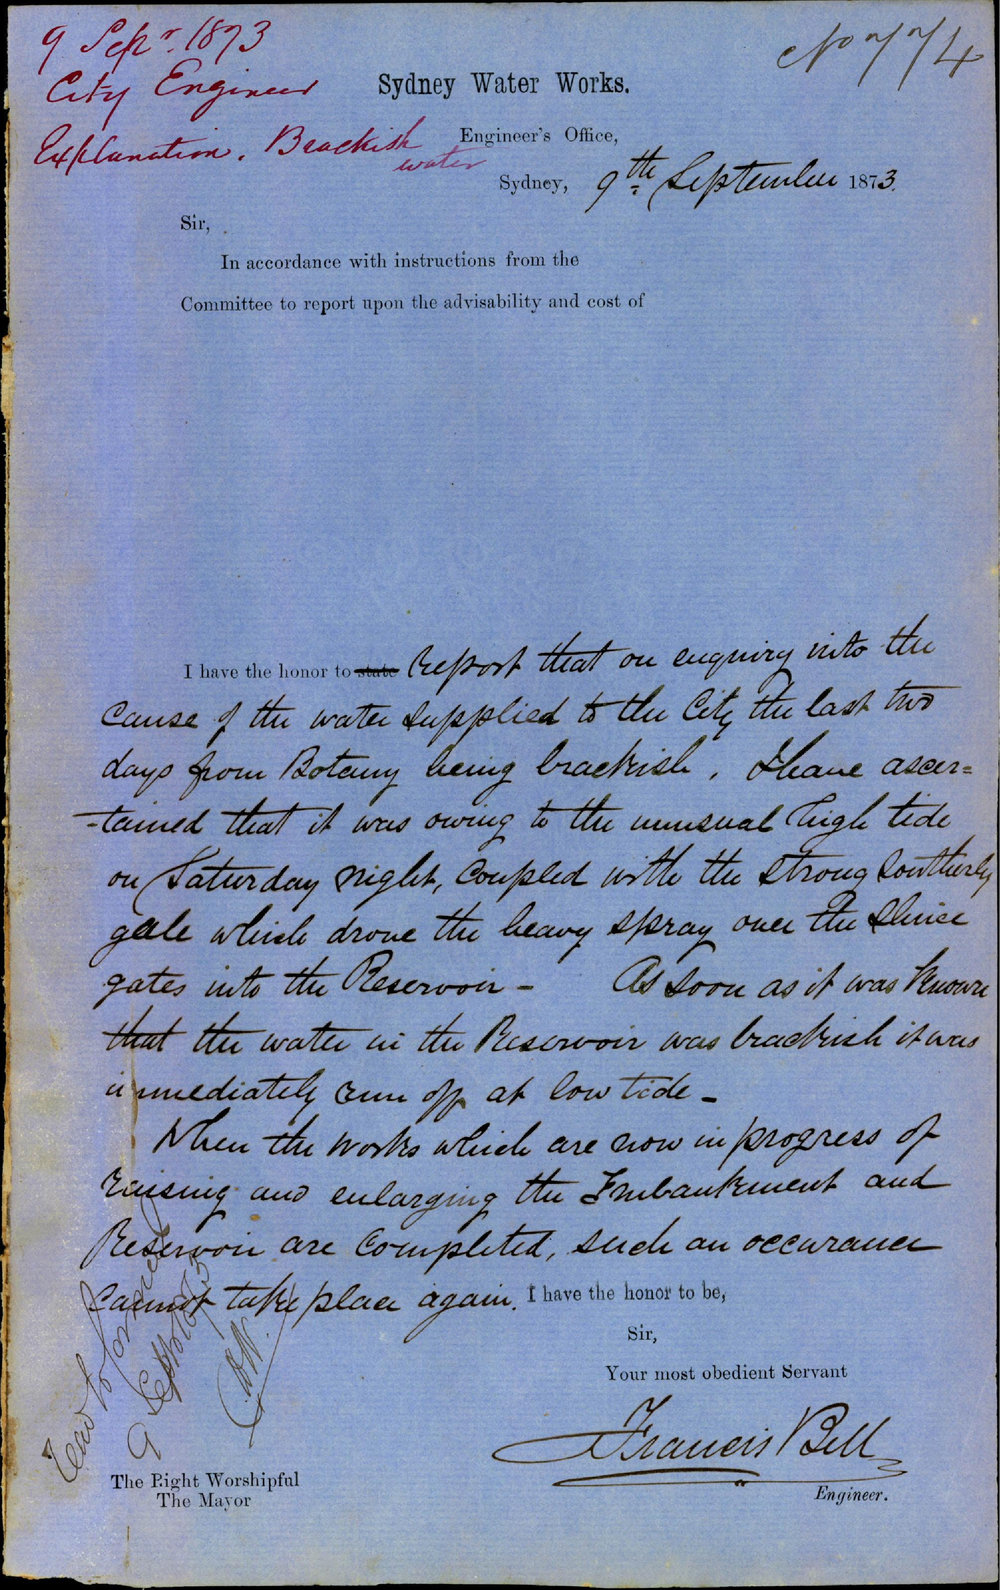 9 Sepr. 1873
City Engineer
Explanation. Brackish
water
No 774
Sydney Water Works.
Engineer's Office,
Sydney, 9th September 1873.
Sir,
In accordance with instructions from the
Committee to report upon the advisability and cost of
I have the honor to state Report that on enquiry into the
cause of the water supplied to the City the last two
days from Botany being brackish, I have ascer=
-tained that it was owing to the unusual high tide
on Saturday night, coupled with the strong Southerly
gale which drove the heavy spray over the Sluice
gates into the Reservoir - As soon as it was known
that the water in the Reservoir was brackish it was
immediately run off at low tide -
When the works which are now in progress of
raising and enlarging the Embankment and
Reservoir are completed, such an occurance
cannot take place again. I have the honor to be,
Sir,
Your most obedient Servant
Francis Bell
Engineer.
The Right Worshipful
The Mayor
9 Sept 1873